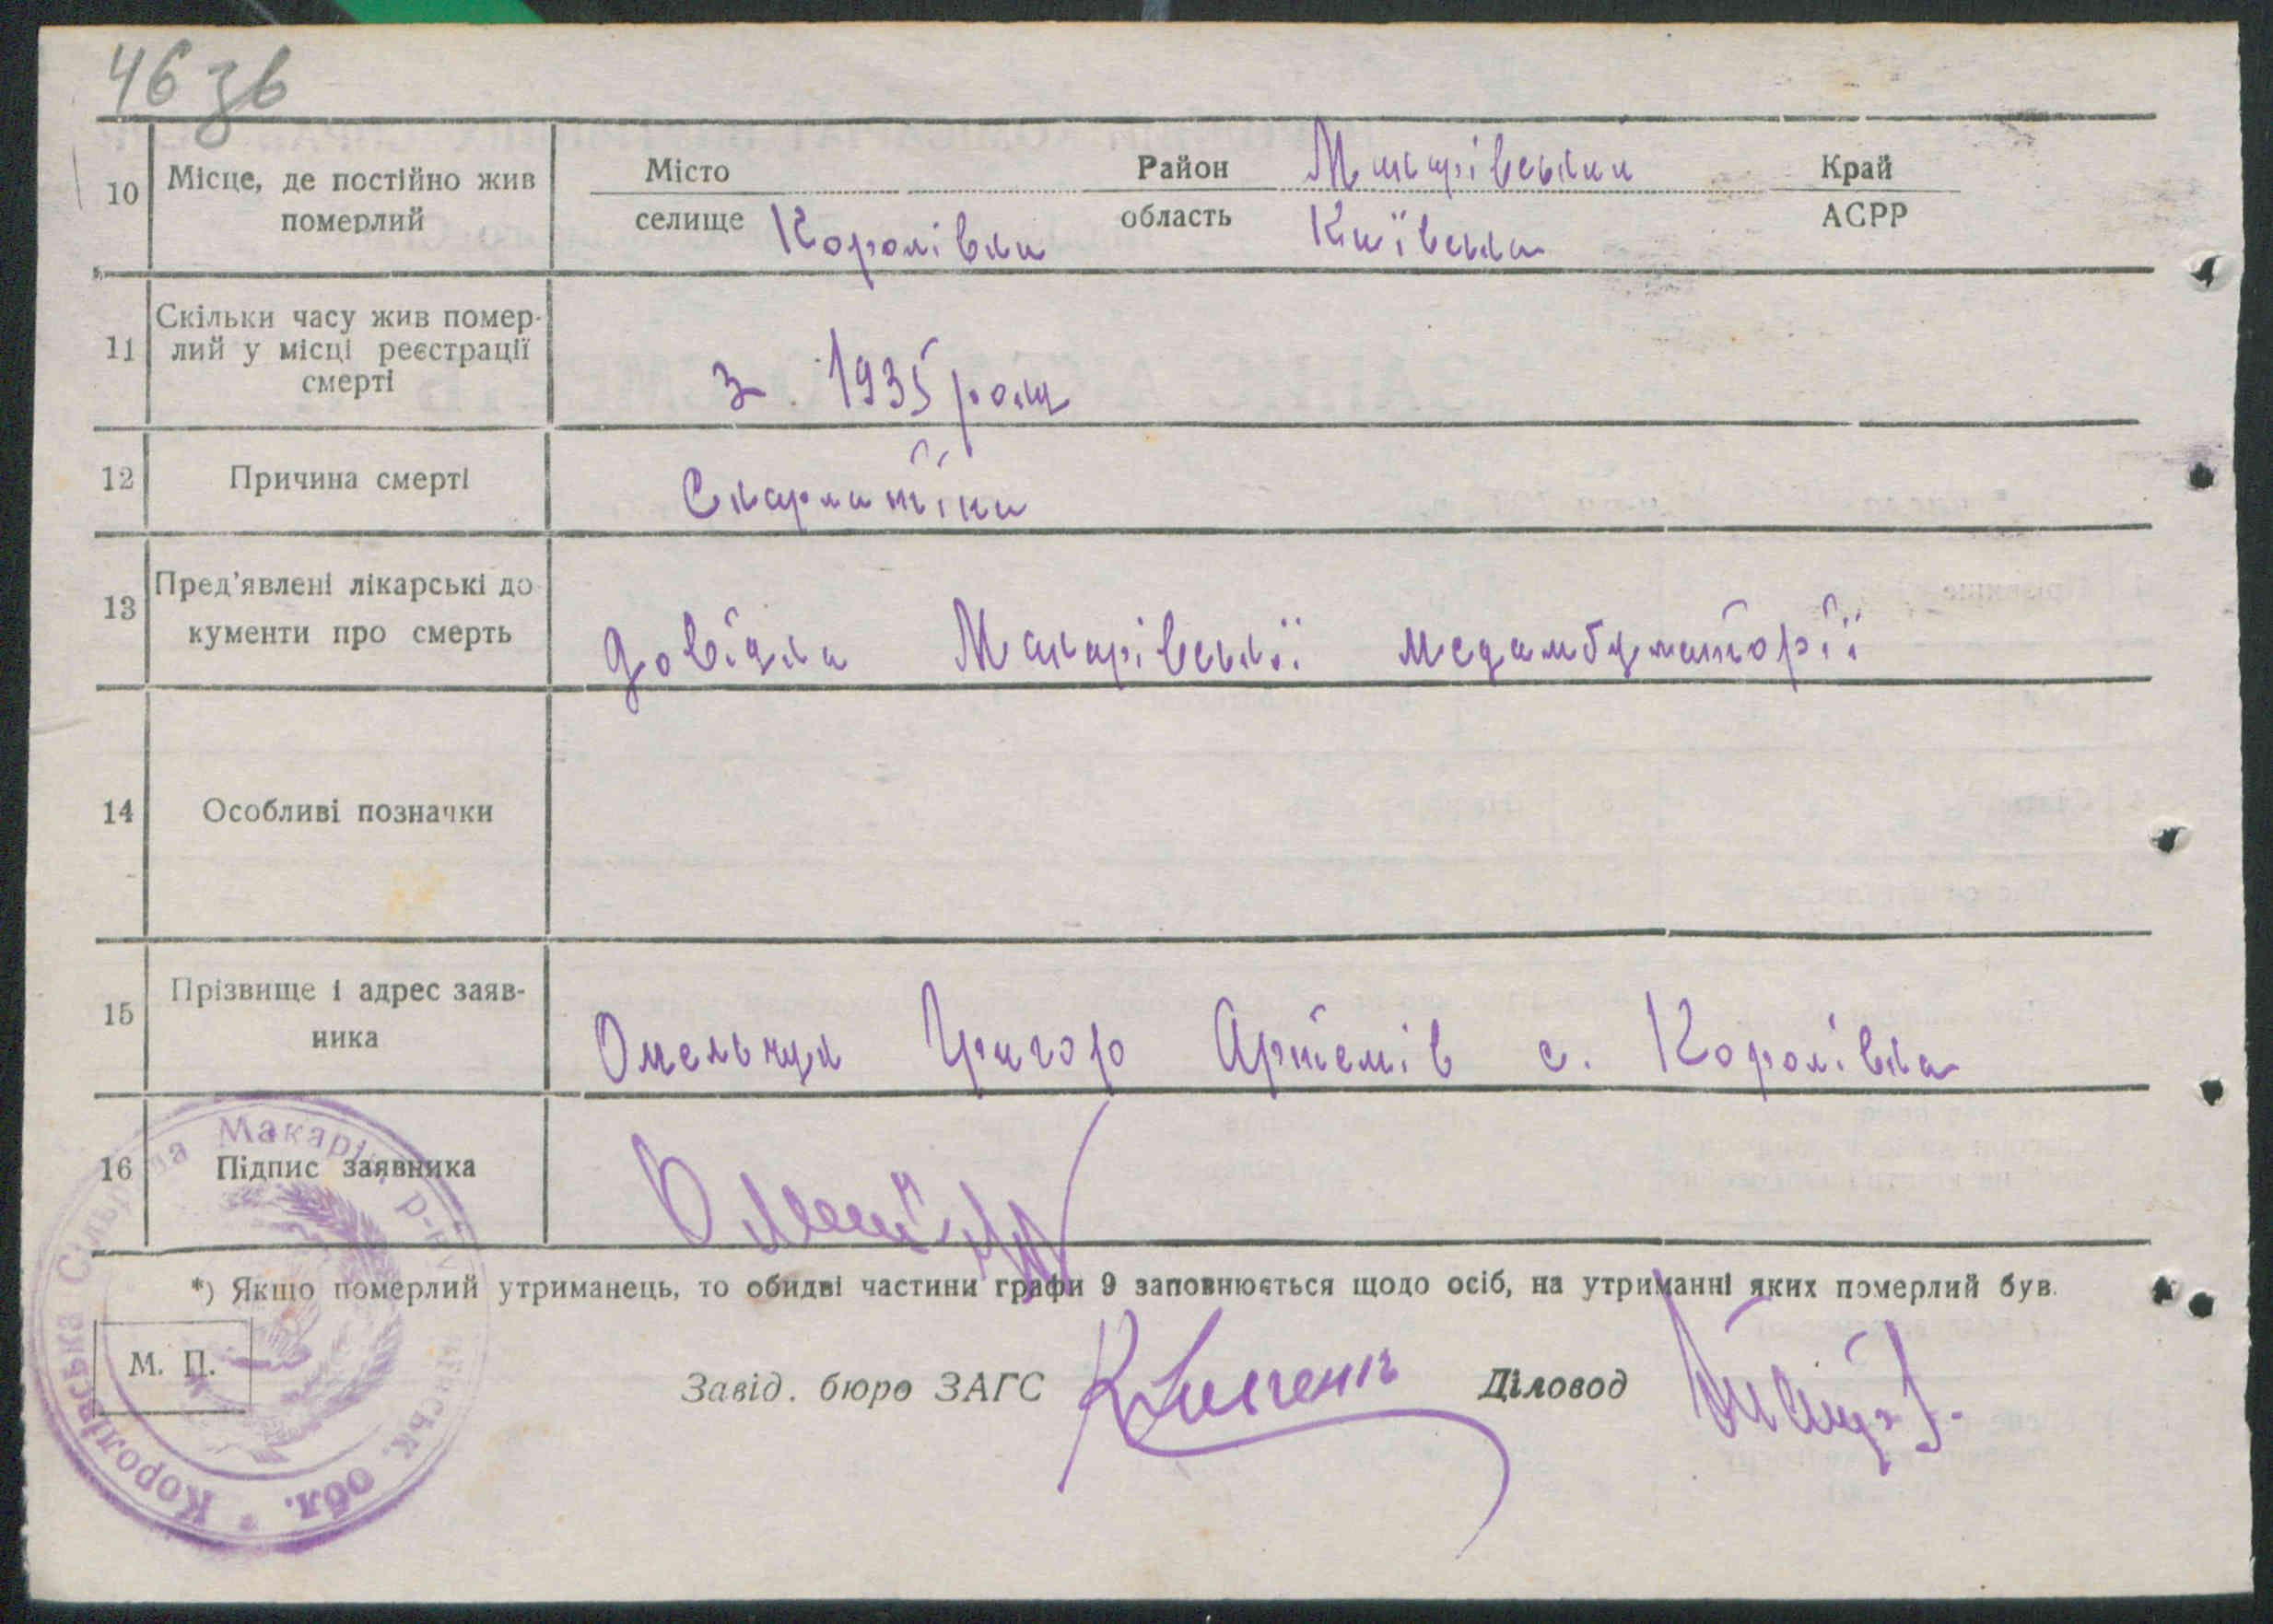 46 зв
10 Місце, де постійно жив померлий
Місто Район Макарівський Край
селище Королівка область Київська АСРР
11 Скільки часу жив помер-
лий у місці реєстрації
смерті
з 1935 року
12 Причина смерті Скарлатіна
13 Пред'явлені лікарські до
кументи про смерть
довідка Макарівської медамбулаторії
14 Особливі позначки
15 Прізвище і адрес заяв-
ника
Омельчук Григор Артемів с. Королівка
16 Підпис заявника
*) Якщо померлий утриманець, то обидві частини графи 9 заповнюється щодо осіб, на утриманні яких померлий був.
М. П.
Завід. бюро ЗАГС Діловод
Королівська Сільрада Макарів. р-ну обл.